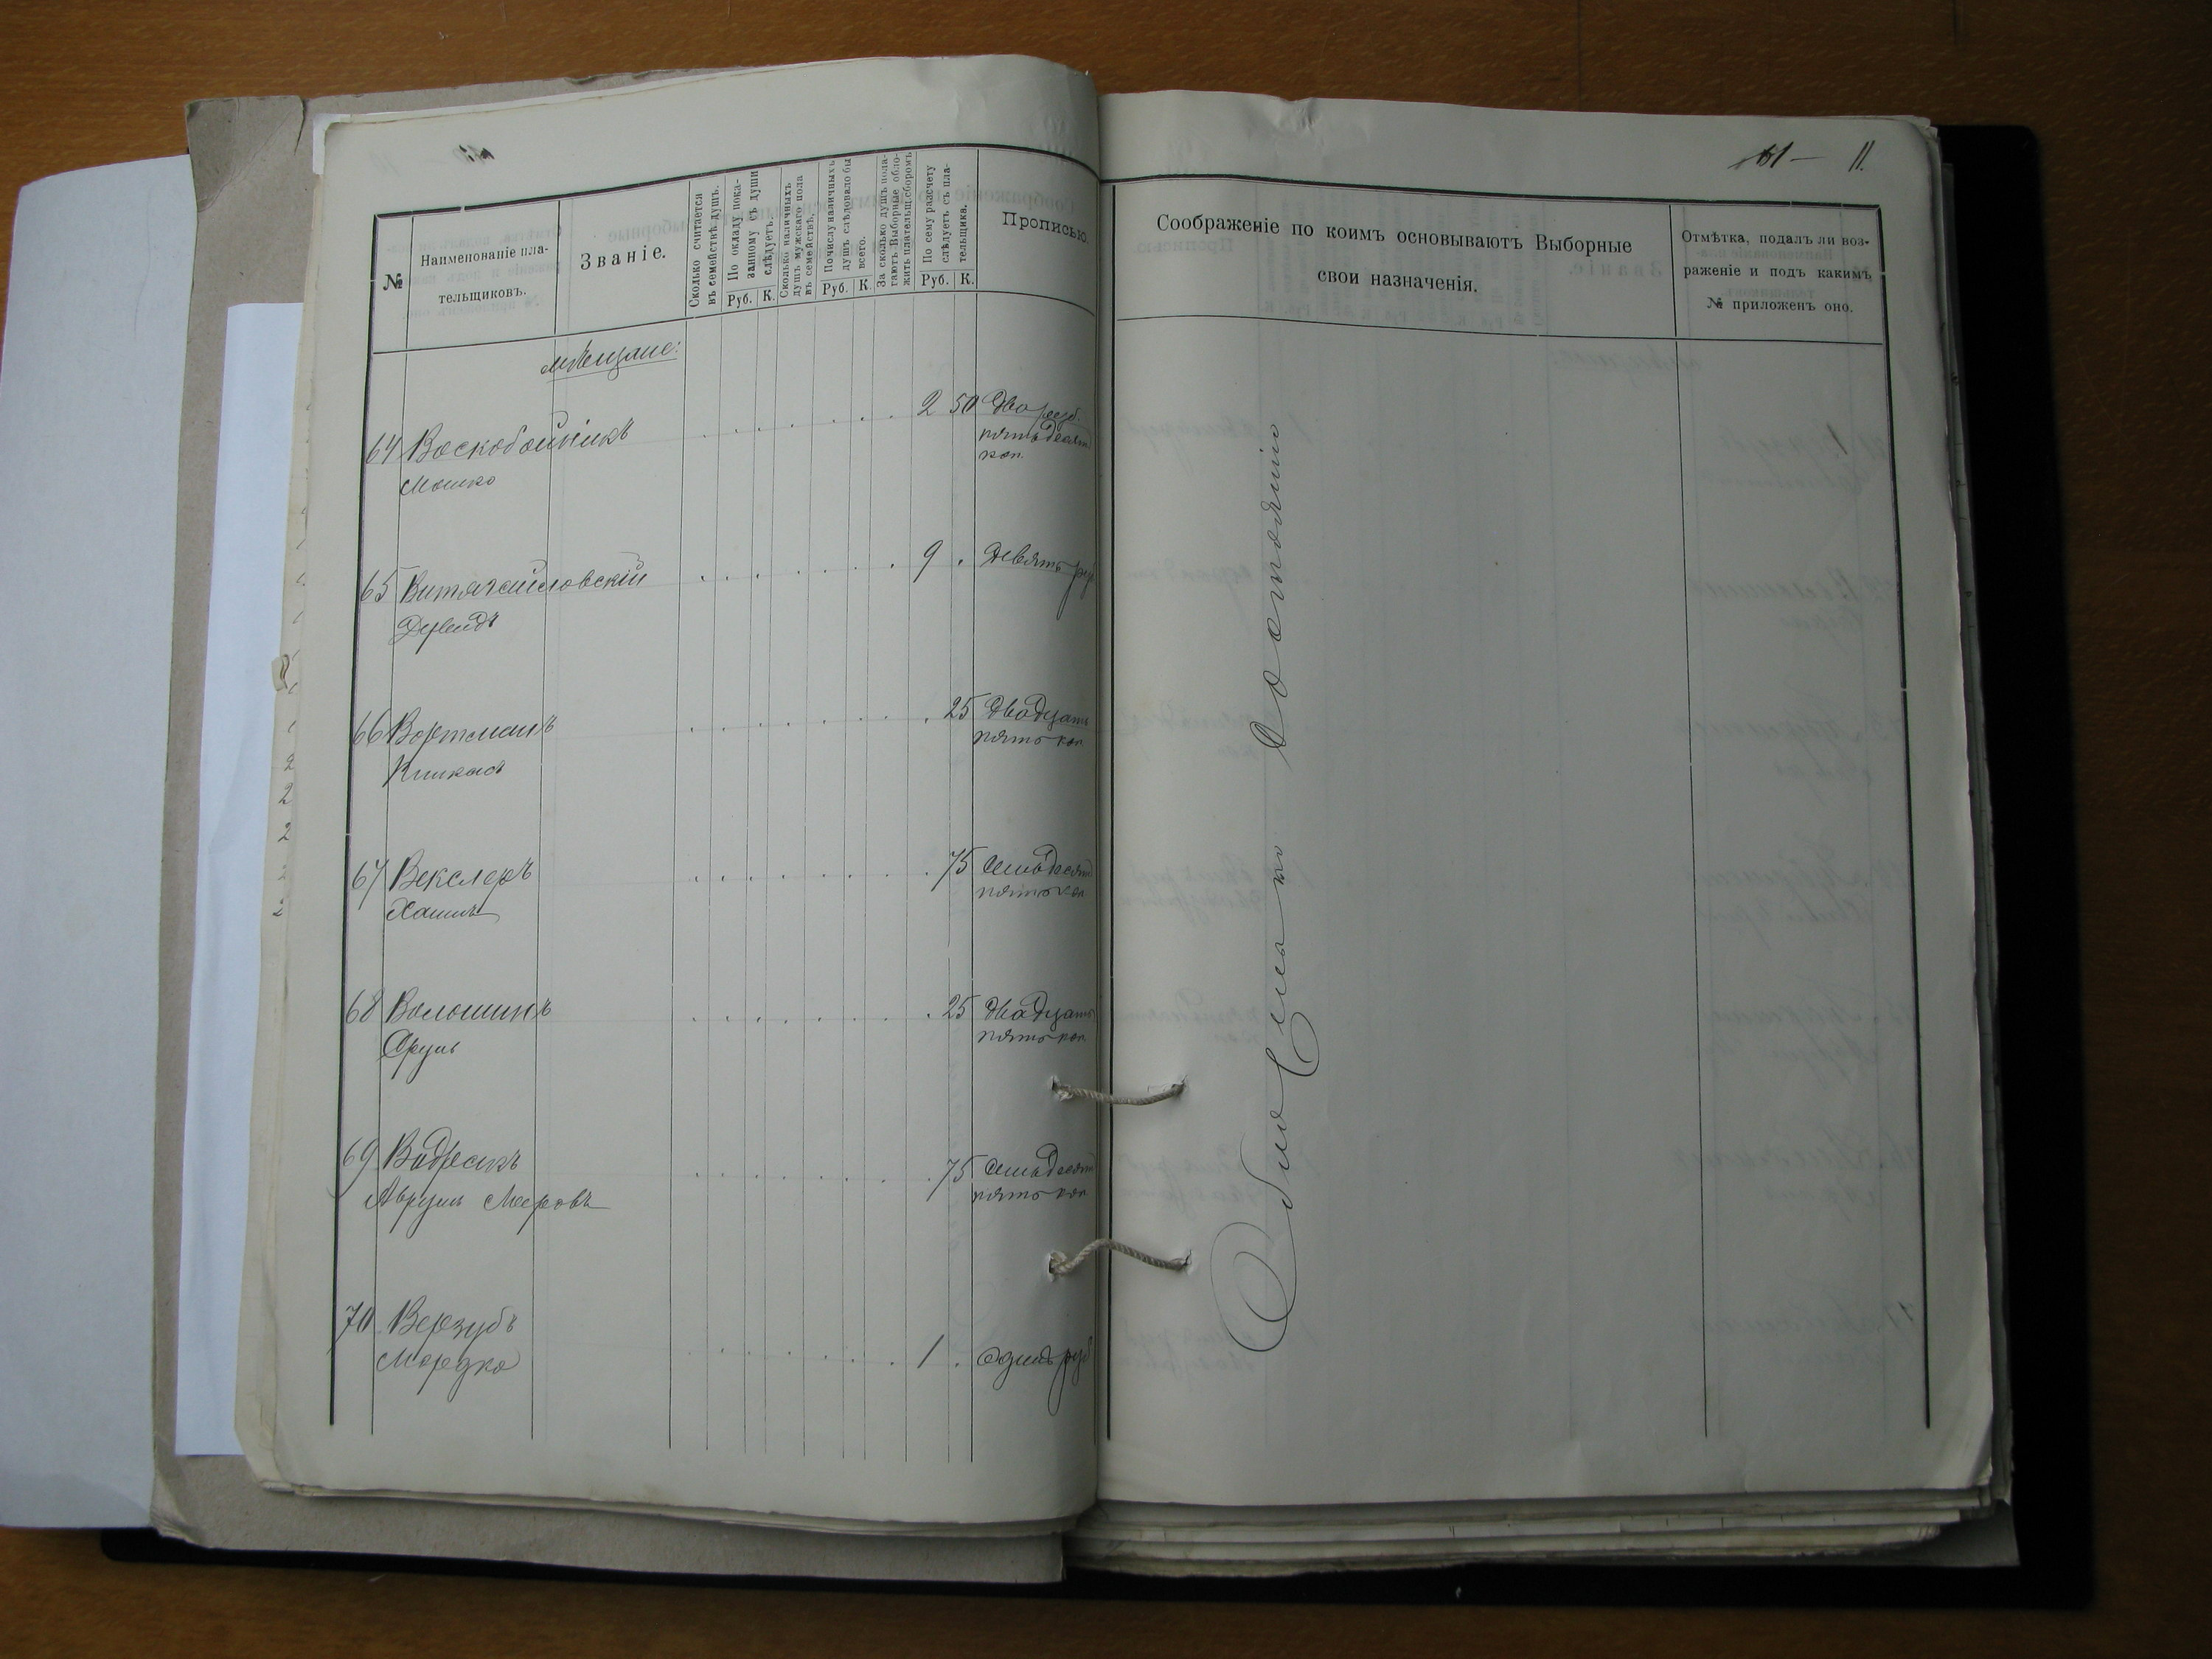 №
Наименованіе пла-
тельщиковъ.
Званіе.
Сколько считается
въ семействѣ душъ.
По окладу пока-
занному съ души
слѣдуетъ.
Руб. К.
Сколько наличныхъ
душъ мужскаго пола
въ семействѣ.
По числу наличныхъ
душъ слѣдовало бы
всего.
Руб. К.
За сколько душъ пола-
гаютъ Выборные обло-
жить плательщ. сборомъ
По сему разсчету
слѣдуетъ съ пла-
тельщика.
Руб. К.
Прописью.
мѣщане:
64 Воскобойникъ 2 50 Два руб.
Мошко пятьдесят
коп.
65 9 . Девять руб
66 Вортманъ . 25 Двадцать
пять коп
67 Векслеръ . 75 Семьдесят
Хаимъ пять коп
68 Волошинъ . 25 Двадцать
Сруль пять коп.
69 . 75 Семьдесят
Аврумъ Мееровъ пять коп
70 Верзубъ
Мордко 1 . Один руб
11.
Соображеніе по коимъ основываютъ Выборные
свои назначенія.
Отмѣтка, подалъ ли воз-
раженіе и подъ какимъ
№ приложенъ оно.
состоянію